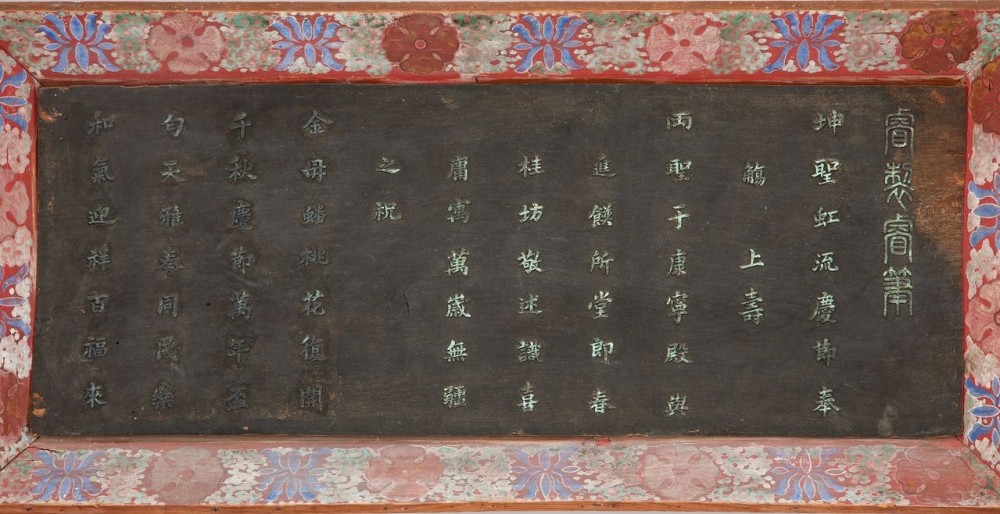 睿製睿筆
坤聖虹流慶節奉
觴 上壽
兩聖于康寧殿與
進饌所堂即春
桂坊敬述識喜
庸寓萬歲無疆
之祝
金母蟠桃花復開
千秋慶節萬年盃
勻天雅奏同民樂
和氣迎祥百福來